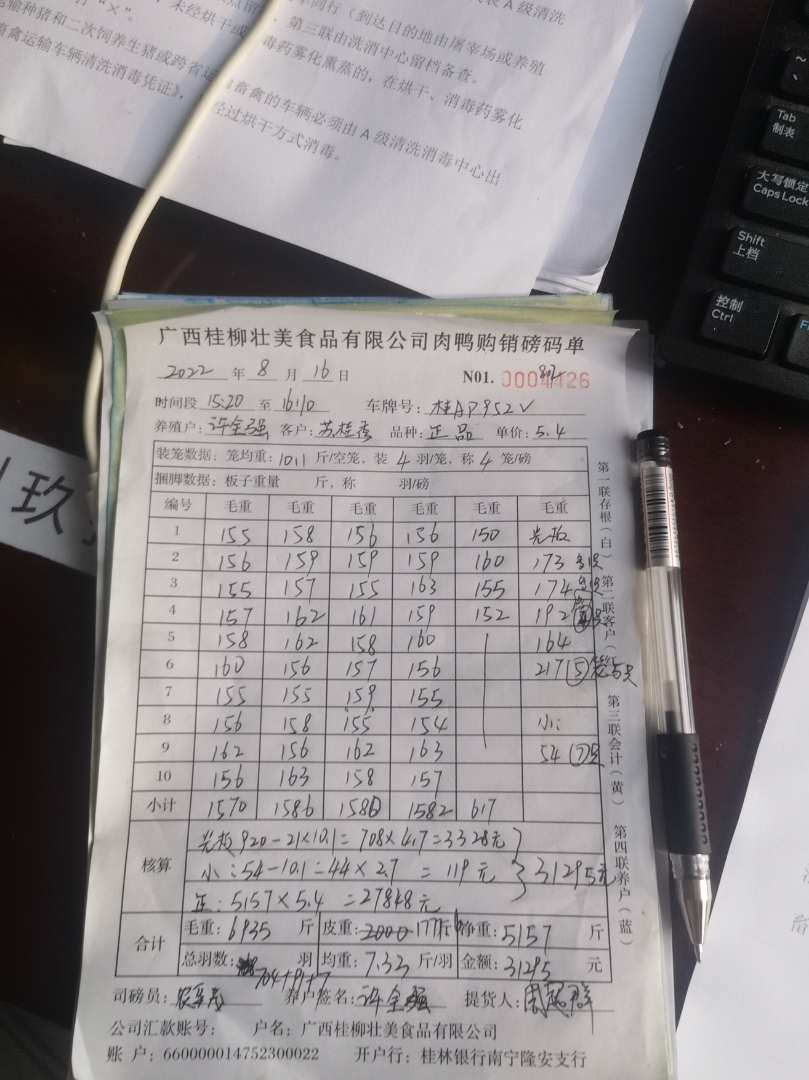 表A级清洗
车同行（到达目的地由屠宰场或养殖
第三联由洗消中心留档备查。
未经烘干或
毒药雾化熏蒸的，在烘干、消毒药雾化
运输种猪和二次饲养生猪或跨省运
畜禽的车辆必须由A级清洗消毒中心出
畜禽运输车辆清洗消毒凭证》，
经过烘干方式消毒。
Tab
制表
大写锁定
Caps Lock
Shift
上档
控制
Ctrl
玖
广西桂柳壮美食品有限公司肉鸭购销磅码单
2022 年 8 月 16 日 N01. 0004126
时间段 15:20 至 16:10 车牌号：桂AP952V
养殖户：许全强 客户：苏桂香 品种：正品 单价：5.4
装笼数据：笼均重：10.1 斤/空笼，装 4 羽/笼，称 4 笼/磅
捆脚数据：板子重量 斤，称 羽/磅
编号 毛重 毛重 毛重 毛重 毛重 毛重
1 155 158 156 156 150 光板
2 156 159 159 159 160 173
3 155 157 155 163 155 174
4 157 162 161 159 152 192
5 158 162 158 160 164
6 160 156 157 156 217 ⑤
7 155 155 159 155
8 156 158 155 154 小:
9 162 156 162 163 54 ⑦只
10 156 163 158 157
小计 1570 1586 1580 1582 617
核算
光板 920-21×10.1=708×4.7=3328元
小:54-10.1=44×2.7=119元 31295元
正:5157×5.4=27848元
合计
毛重：6935 斤 皮重：2000 1778 净重：5157 斤
总羽数：704+91+7 羽 均重：7.33 斤/羽 金额：31295 元
司磅员： 养户签名：许全强 提货人：
公司汇款账号： 户名：广西桂柳壮美食品有限公司
账 户：660000014752300022 开户行：桂林银行南宁隆安支行
第一联存根（白）
第二联客户（红）
第三联会计（黄）
第四联养户（蓝）